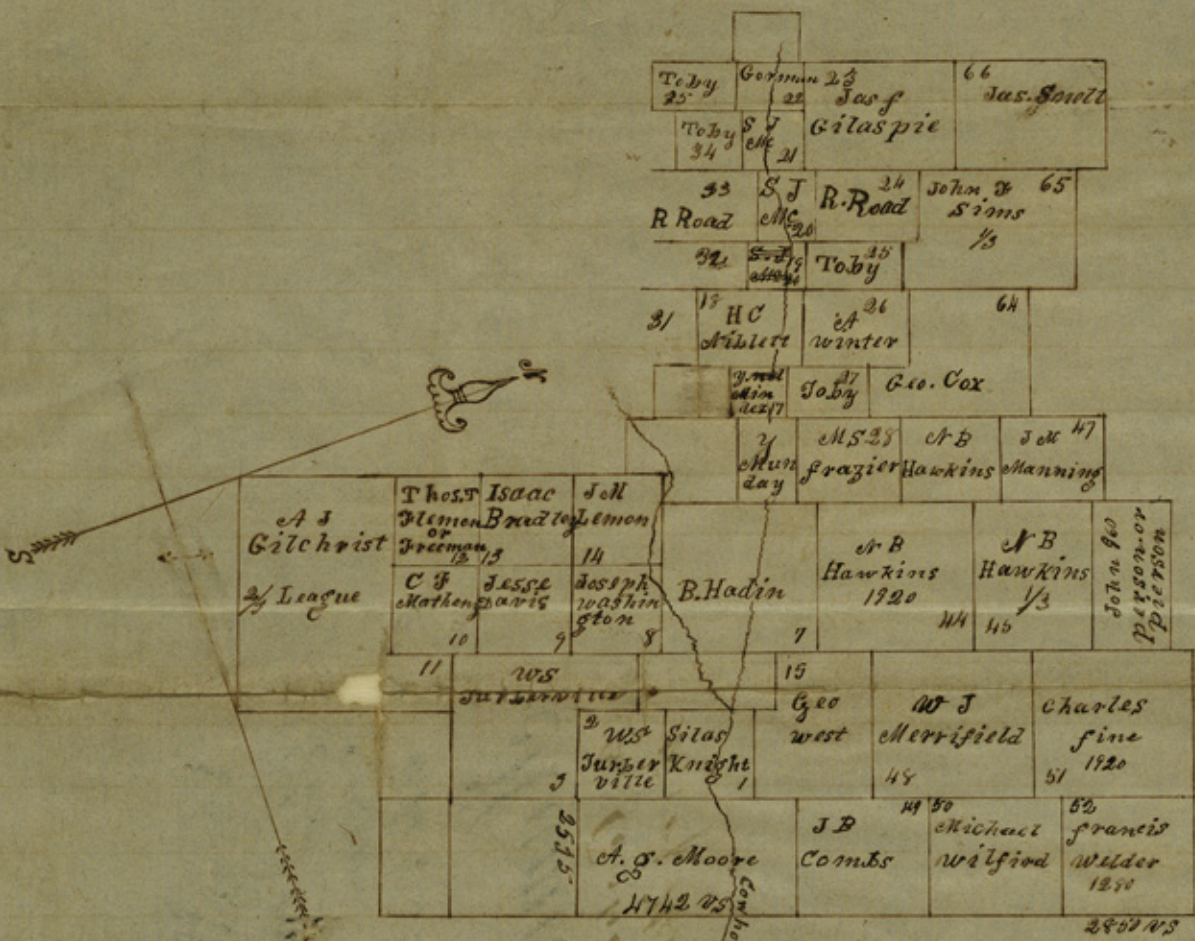 Toby
25
Gorman
22
23
Jas f
Gilaspie
66
Jas. Smoll
Toby
34
S J
Mc
21
33
R Road
S J
Mc
20
24
R. Road
John F
Sims
1/3
65
32
19
Toby
25
31
18
H C
Niblett
26
A
winter
64
Min
dez 17
Toby
27
Geo. Cox
Y
Mun
day
M S 28
frazier
N B
Hawkins
J M 47
Manning
N
S
A J
Gilchrist
2/3 League
Thos. T
Flemon
or
Freeman
12
Isaac
Bradley
13
J M
Lemon
14
C F
Mathens
10
Jesse
Davis
9
Joseph
washin
gton
8
B. Hadin
7
N B
Hawkins
1920
44
N B
Hawkins
1/3
45
John
person. or
pierson
11
W S
Turberville
15
Geo
west
W J
Merrifield
48
Charles
fine
1920
51
3
2
W S
Turber
ville
Silas
Knight
1
2535
A. g. Moore
4742 VS
Cowho
J B
Combs
49
50
Michael
wilfird
52
francis
Welder
1280
2850 VS